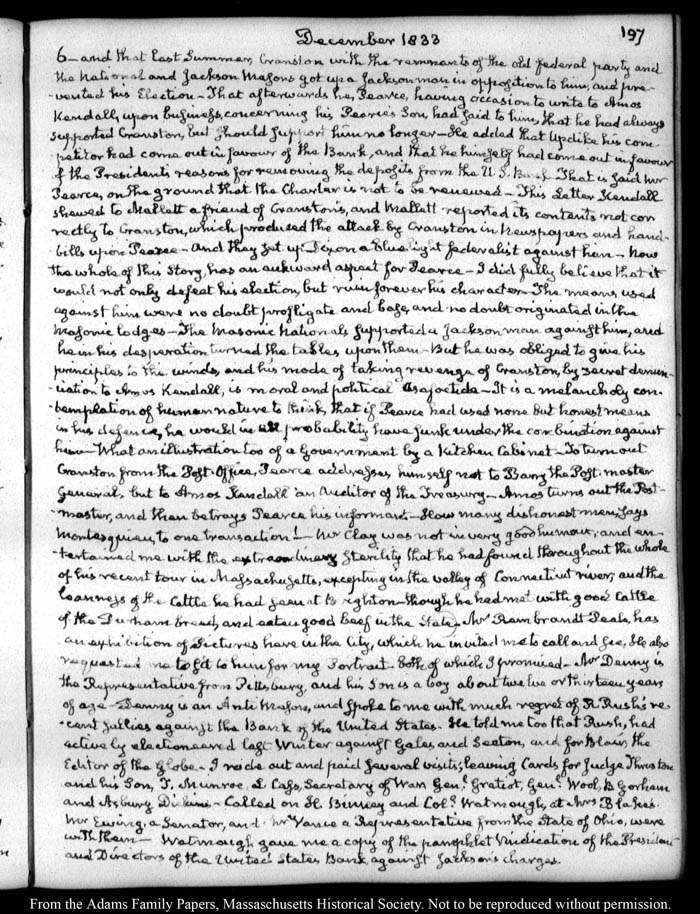 December 1833
197
6 — and that last Summer, Cranston with the remnants of the old federal party and
the National and Jackson Masons got up a Jackson man in opposition to him, and pre-
-vented his Election — That afterwards he, Pearce, having occasion to write to Amos
Kendall, upon business, concerning his, Pearce's Son, had said to him, that he had always
supported Cranston, but should support him no longer — He added that Updike his com-
petitor had come out in favour of the Bank, and that he himself had come out in favour
of the President's reasons for removing the deposits from the U.S. Bank. That is said Mr
Pearce, on the ground that the Charter is not to be renewed — This Letter Kendall
shewed to Mallett a friend of Cranston's, and Mallett reported its contents not cor
rectly to Cranston, which produced the attack by Cranston in Newspapers and hand-
bills upon Pearce — And they set up Dixon a blue light federalist against him — Now
the whole of this Story, has an aukward aspect for Pearce — I did fully believe that it
would not only defeat his election, but ruin forever his character. The means used
against him were no doubt profligate and base, and no doubt originated in the
Masonic lodges — The Masonic Nationals supported a Jackson man against him, and
he in his desperation turned the tables upon them — But he was obliged to give his
principles to the winds, and his mode of taking revenge of Cranston, by secret denun-
-ciation to Amos Kendall, is moral and political Asafoetida — It is a melancholy con-
-templation of human nature to think, that if Pearce had used none but honest means
in his defence, he would in all probability have sunk under the combination against
him — What an illustration too of a Government by a Kitchen Cabinet — To turn out
Cranston from the Post-Office, Pearce addresses himself not to Barry the Post-master
General, but to Amos Kendall an Auditor of the Treasury — Amos turns out the Post-
-master, and then betrays Pearce his informant — How many dishonest men, says
Montesquieu, to one transaction! — Mr Clay was not in very good humour, and en-
-tertained me with the extraordinary sterility that he had found throughout the whole
of his recent tour in Massachusetts, excepting in the valley of Connecticut river; and the
leanness of the Cattle he had seen at Brighton — though he had met with good Cattle
of the Durham breed, and eaten good beef in the State. Mr Rembrandt Peale, has
an exhibition of Pictures here in the City, which he invited me to call and see. He also
requested me to sit to him for my Portrait. both of which I promised — Mr Denny is
the Representative from Pittsburg, and his Son is a boy about twelve or thirteen years
of age — Denny is an Anti Mason, and spoke to me with much regret of R. Rush's re-
-cent sallies against the Bank of the United States. He told me too that Rush, had
actively electioneered last Winter against Gales and Seaton, and for Blair, the
Editor of the Globe — I rode out and paid several visits; leaving Cards for Judge Thruston
and his Son, J. Munroe, L Cass, Secretary of War Genl. Gratiot, Genl. Wool, B Gorham
and Asbury Dickins — Called on H. Binney and Coll. Watmough, at Mrs Blake's.
Mr Ewing, a Senator, and Mr Vance a Representative from the State of Ohio, were
with them — Watmough gave me a copy of the pamphlet Vindication of the President
and Directors of the United States Bank, against Jackson's charges.
From the Adams Family Papers, Massachusetts Historical Society. Not to be reproduced without permission.